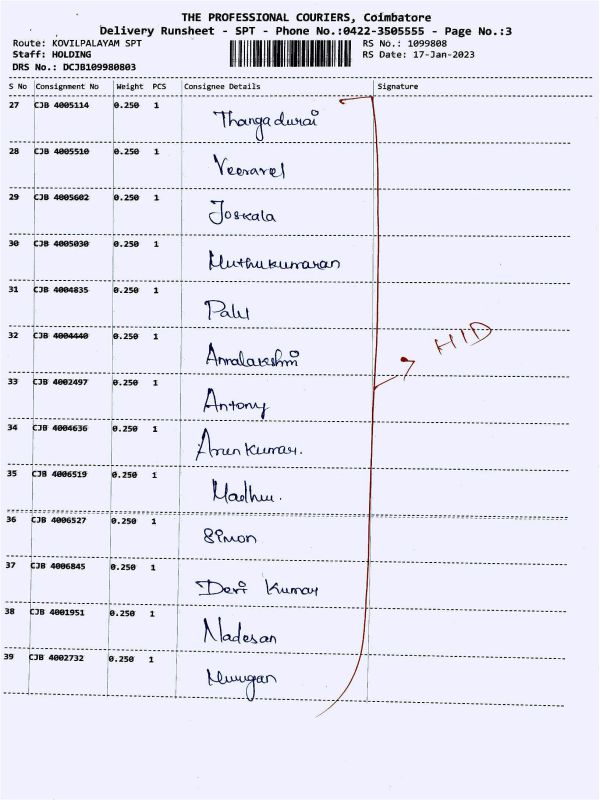 THE PROFESSIONAL COURIERS, Coimbatore
Delivery Runsheet - SPT - Phone No.:0422-3505555 - Page No.:3
Route: KOVILPALAYAM SPT RS No.: 1099808
Staff: HOLDING RS Date: 17-Jan-2023
DRS No.: DCJB109980803
S No Consignment No Weight PCS Consignee Details Signature
27 CJB 4005114 0.250 1 Thangadurai
28 CJB 4005510 0.250 1 Veeravel
29 CJB 4005602 0.250 1 Joskala
30 CJB 4005030 0.250 1 Muthukumaran
31 CJB 4004835 0.250 1
32 CJB 4004440 0.250 1 Annalakshmi
33 CJB 4002497 0.250 1 Antony
34 CJB 4004636 0.250 1 Arun Kumar.
35 CJB 4006519 0.250 1 Madhu.
36 CJB 4006527 0.250 1 Simon
37 CJB 4006845 0.250 1 Devi Kumar
38 CJB 4001951 0.250 1 Nadesan
39 CJB 4002732 0.250 1 Murugan
HID